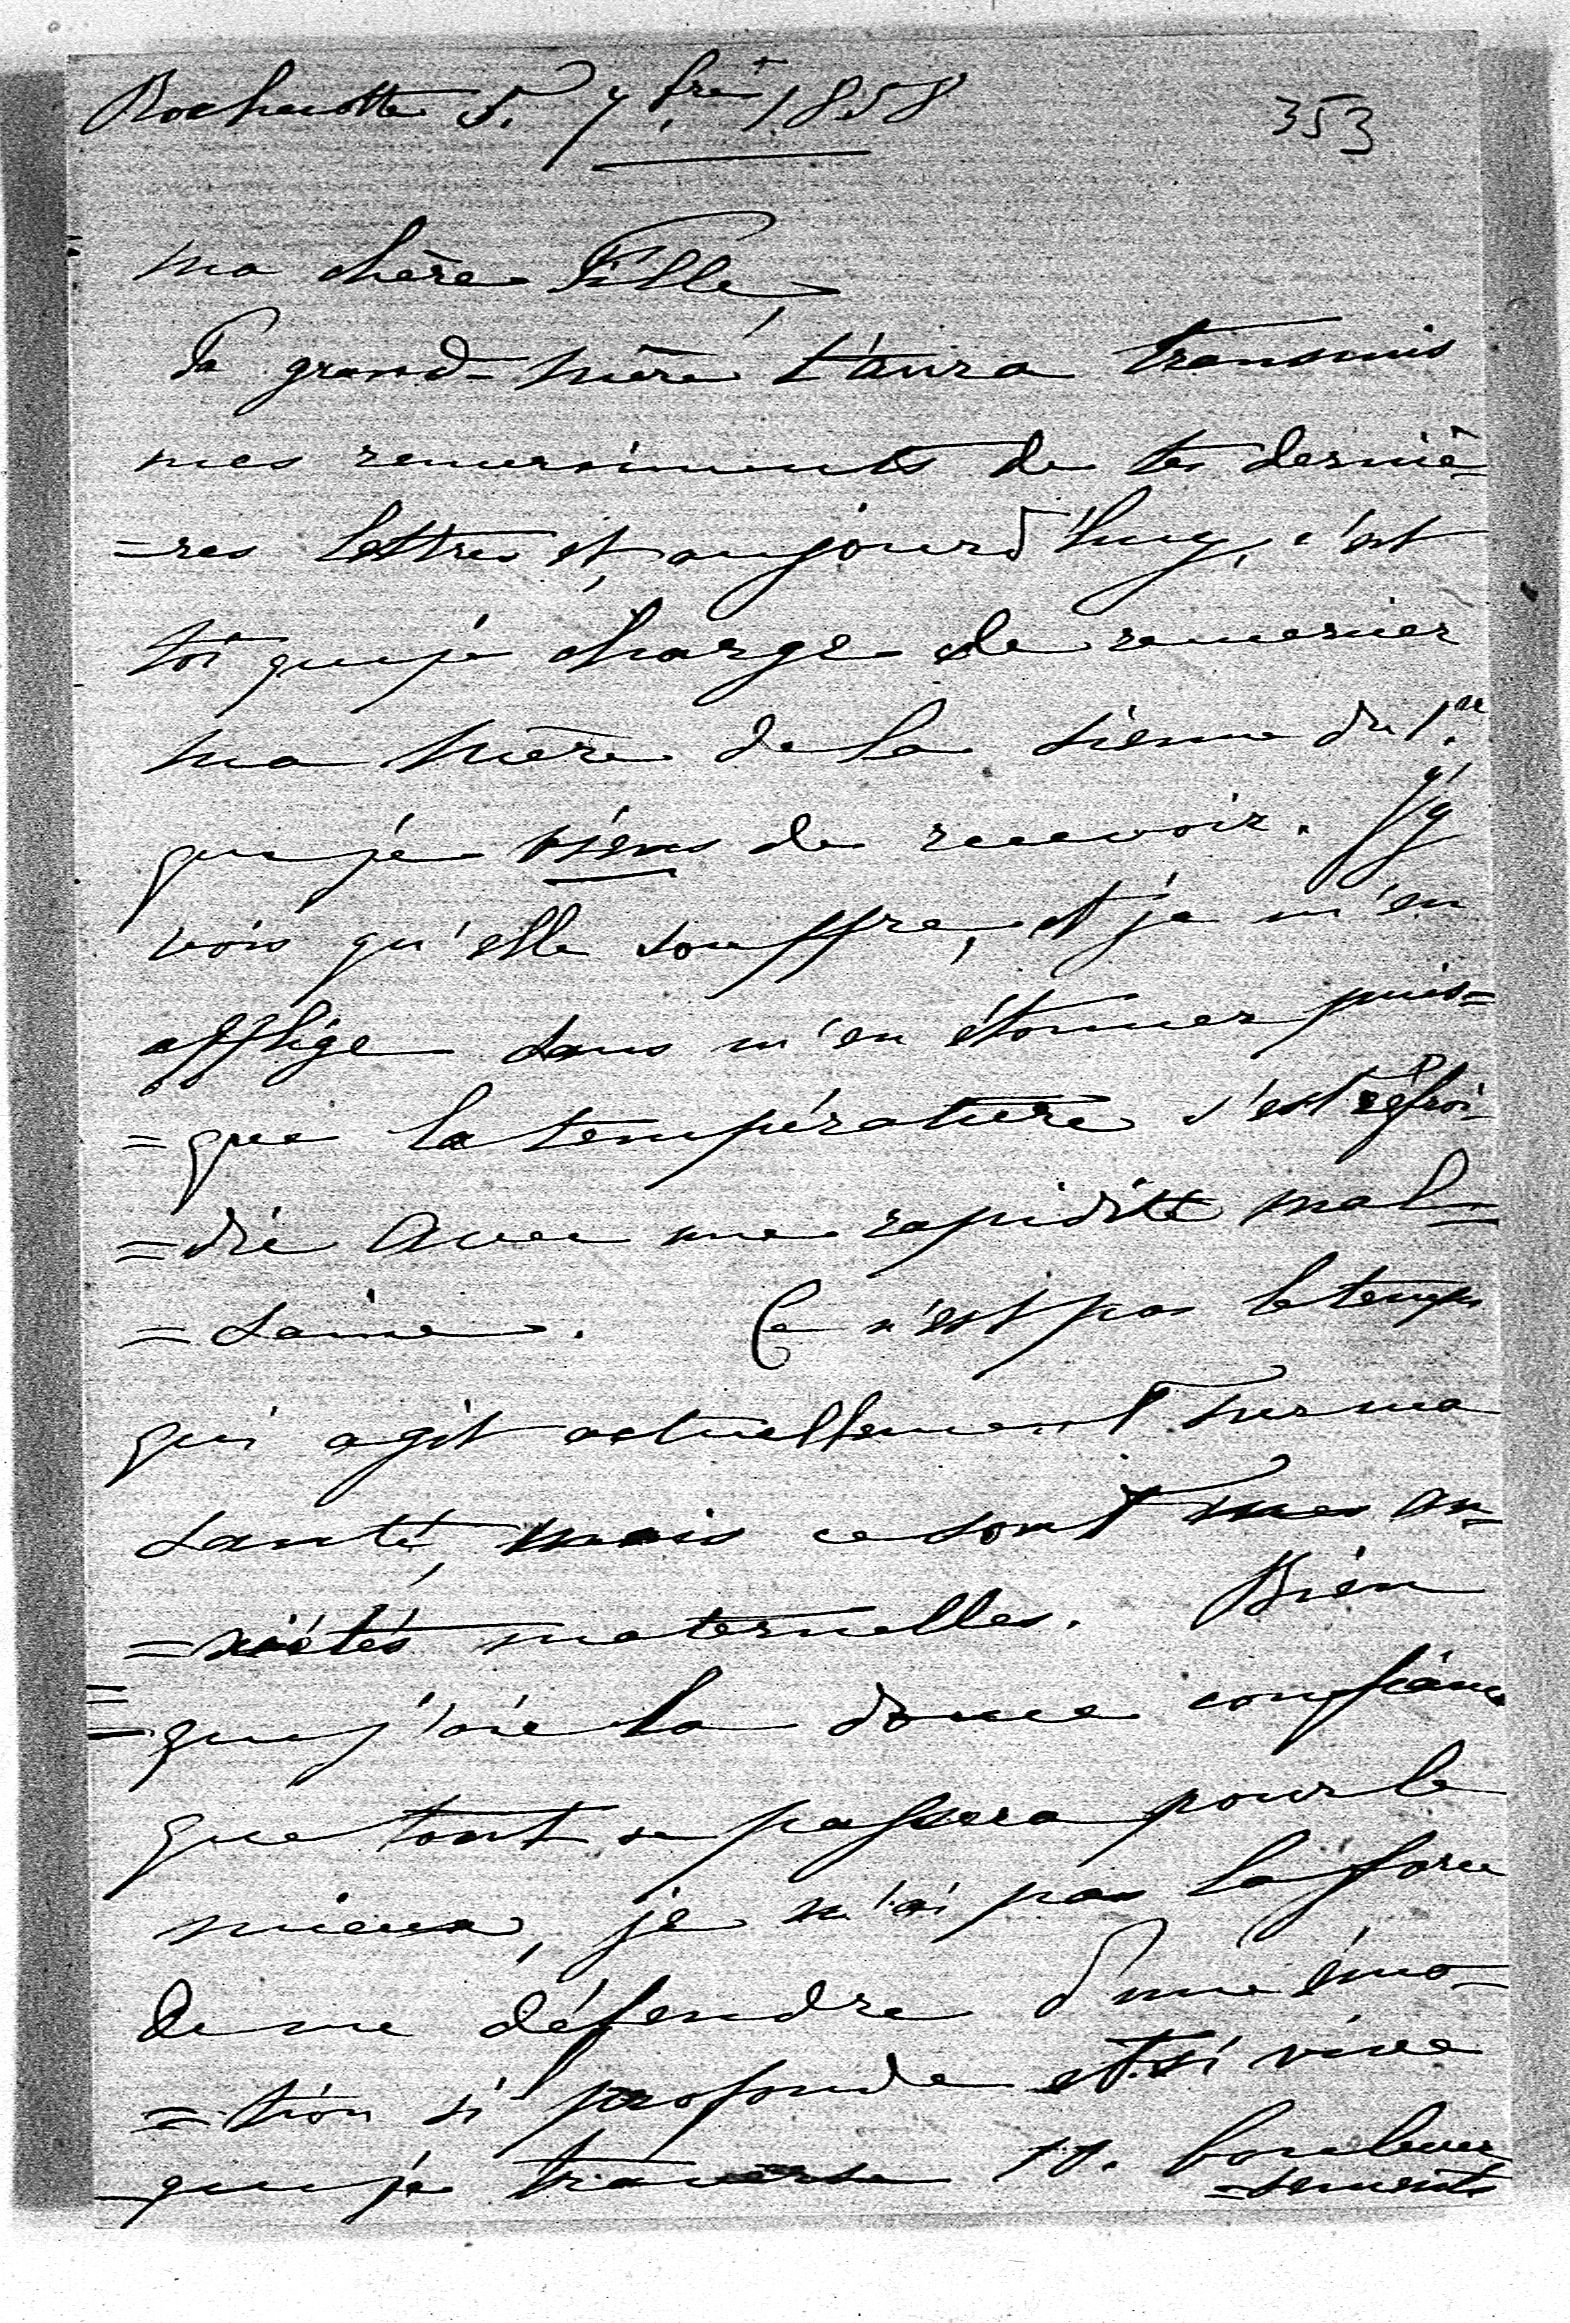 Rochecotte 5. 7bre 1858
353
ma chère Fille,
Ta grand-mère t'aura transmis
mes remerciments de tes derniè=
=res lettres et aujourd'huy, c'est
toi que je charge de remercier
ma mère de la sienne du 1.er
que je viens de recevoir. J'y
vois qu'elle souffre, et je m'en
afflige sans m'en étonner puis=
=que la température s'est refroi=
=die avec une rapidité mal=
=saine. Ce n'est pas le temps
qui agit actuellement sur ma
santé, mais ce sont mes an=
=xiétés maternelles. Bien
que j'aie la douce confiance
que tout se passera pour le
mieux, je n'ai pas la force
de me défendre d'une émo=
=tion si profonde et si vive
que je traverse 10. boulever
=sements